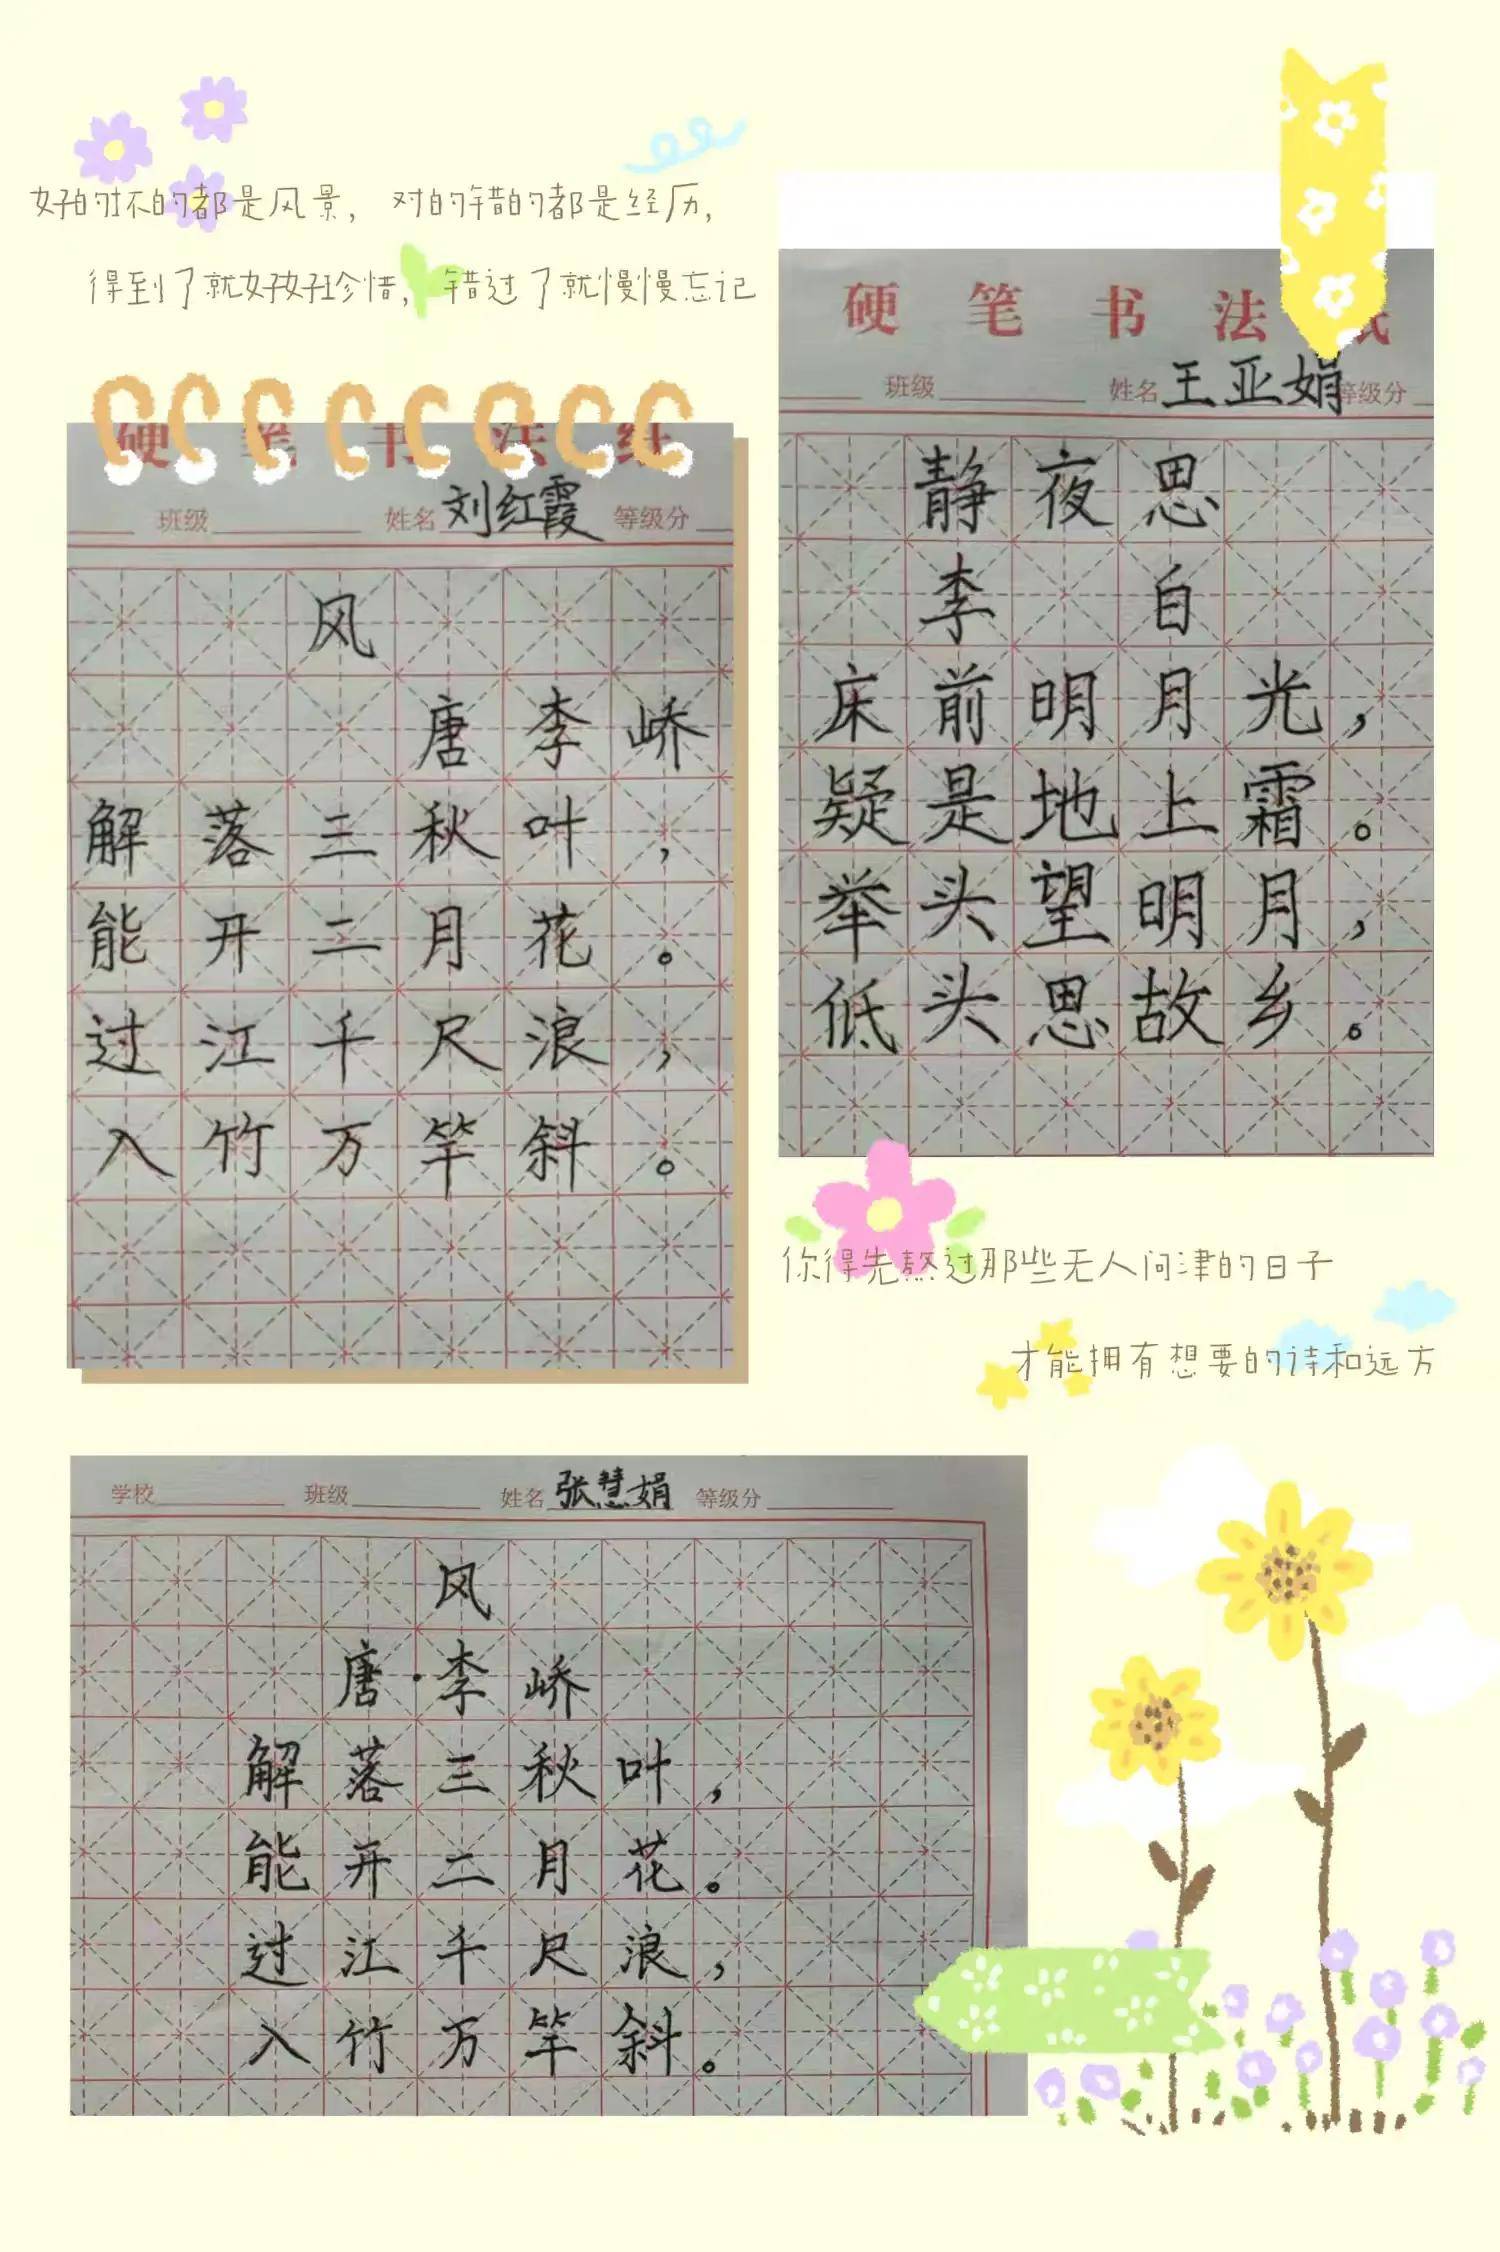 好的坏的都是风景，对的错的都是经历，
得到了就好好珍惜，错过了就慢慢忘记
硬笔书法纸
班级 姓名 刘红霞 等级分
风
唐李峤
解落三秋叶，
能开二月花。
过江千尺浪，
入竹万竿斜。
硬笔书法纸
班级 姓名 王亚娟 等级分
静夜思
李白
床前明月光，
疑是地上霜。
举头望明月，
低头思故乡。
你得先熬过那些无人问津的日子
才能拥有想要的诗和远方
学校 班级 姓名 张慧娟 等级分
风
唐·李峤
解落三秋叶，
能开二月花。
过江千尺浪，
入竹万竿斜。